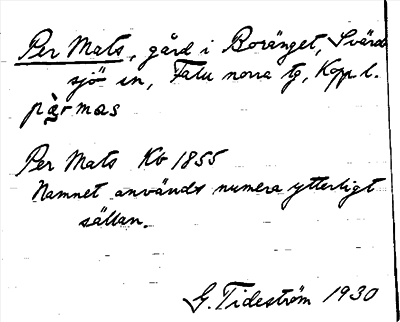 Per Mats, gård i Boränget, Svärd
sjö sn, Falu norra tg, Kopp l.
pæ̀r mas
Per Mats Kb 1855
Namnet användt numera ytterligt
sällan.
G. Tideström 1930